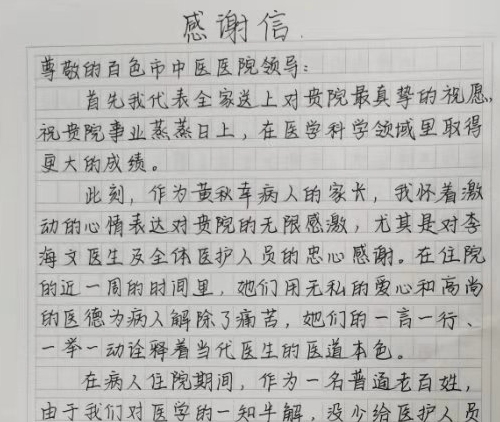 感谢信.
尊敬的百色市中医医院领导:
首先我代表全家送上对贵院最真挚的祝愿,
祝贵院事业蒸蒸日上,在医学科学领域里取得
更大的成绩。
此刻,作为黄秋幸病人的家长,我怀着激
动的心情表达对贵院的无限感激,尤其是对李
海文医生及全体医护人员的忠心感谢。在住院
的近一周的时间里,她们用无私的爱心和高尚
的医德为病人解除了痛苦,她们的一言一行、
一举一动诠释着当代医生的医道本色。
在病人住院期间,作为一名普通老百姓,
由于我们对医学的一知半解,没少给医护人员